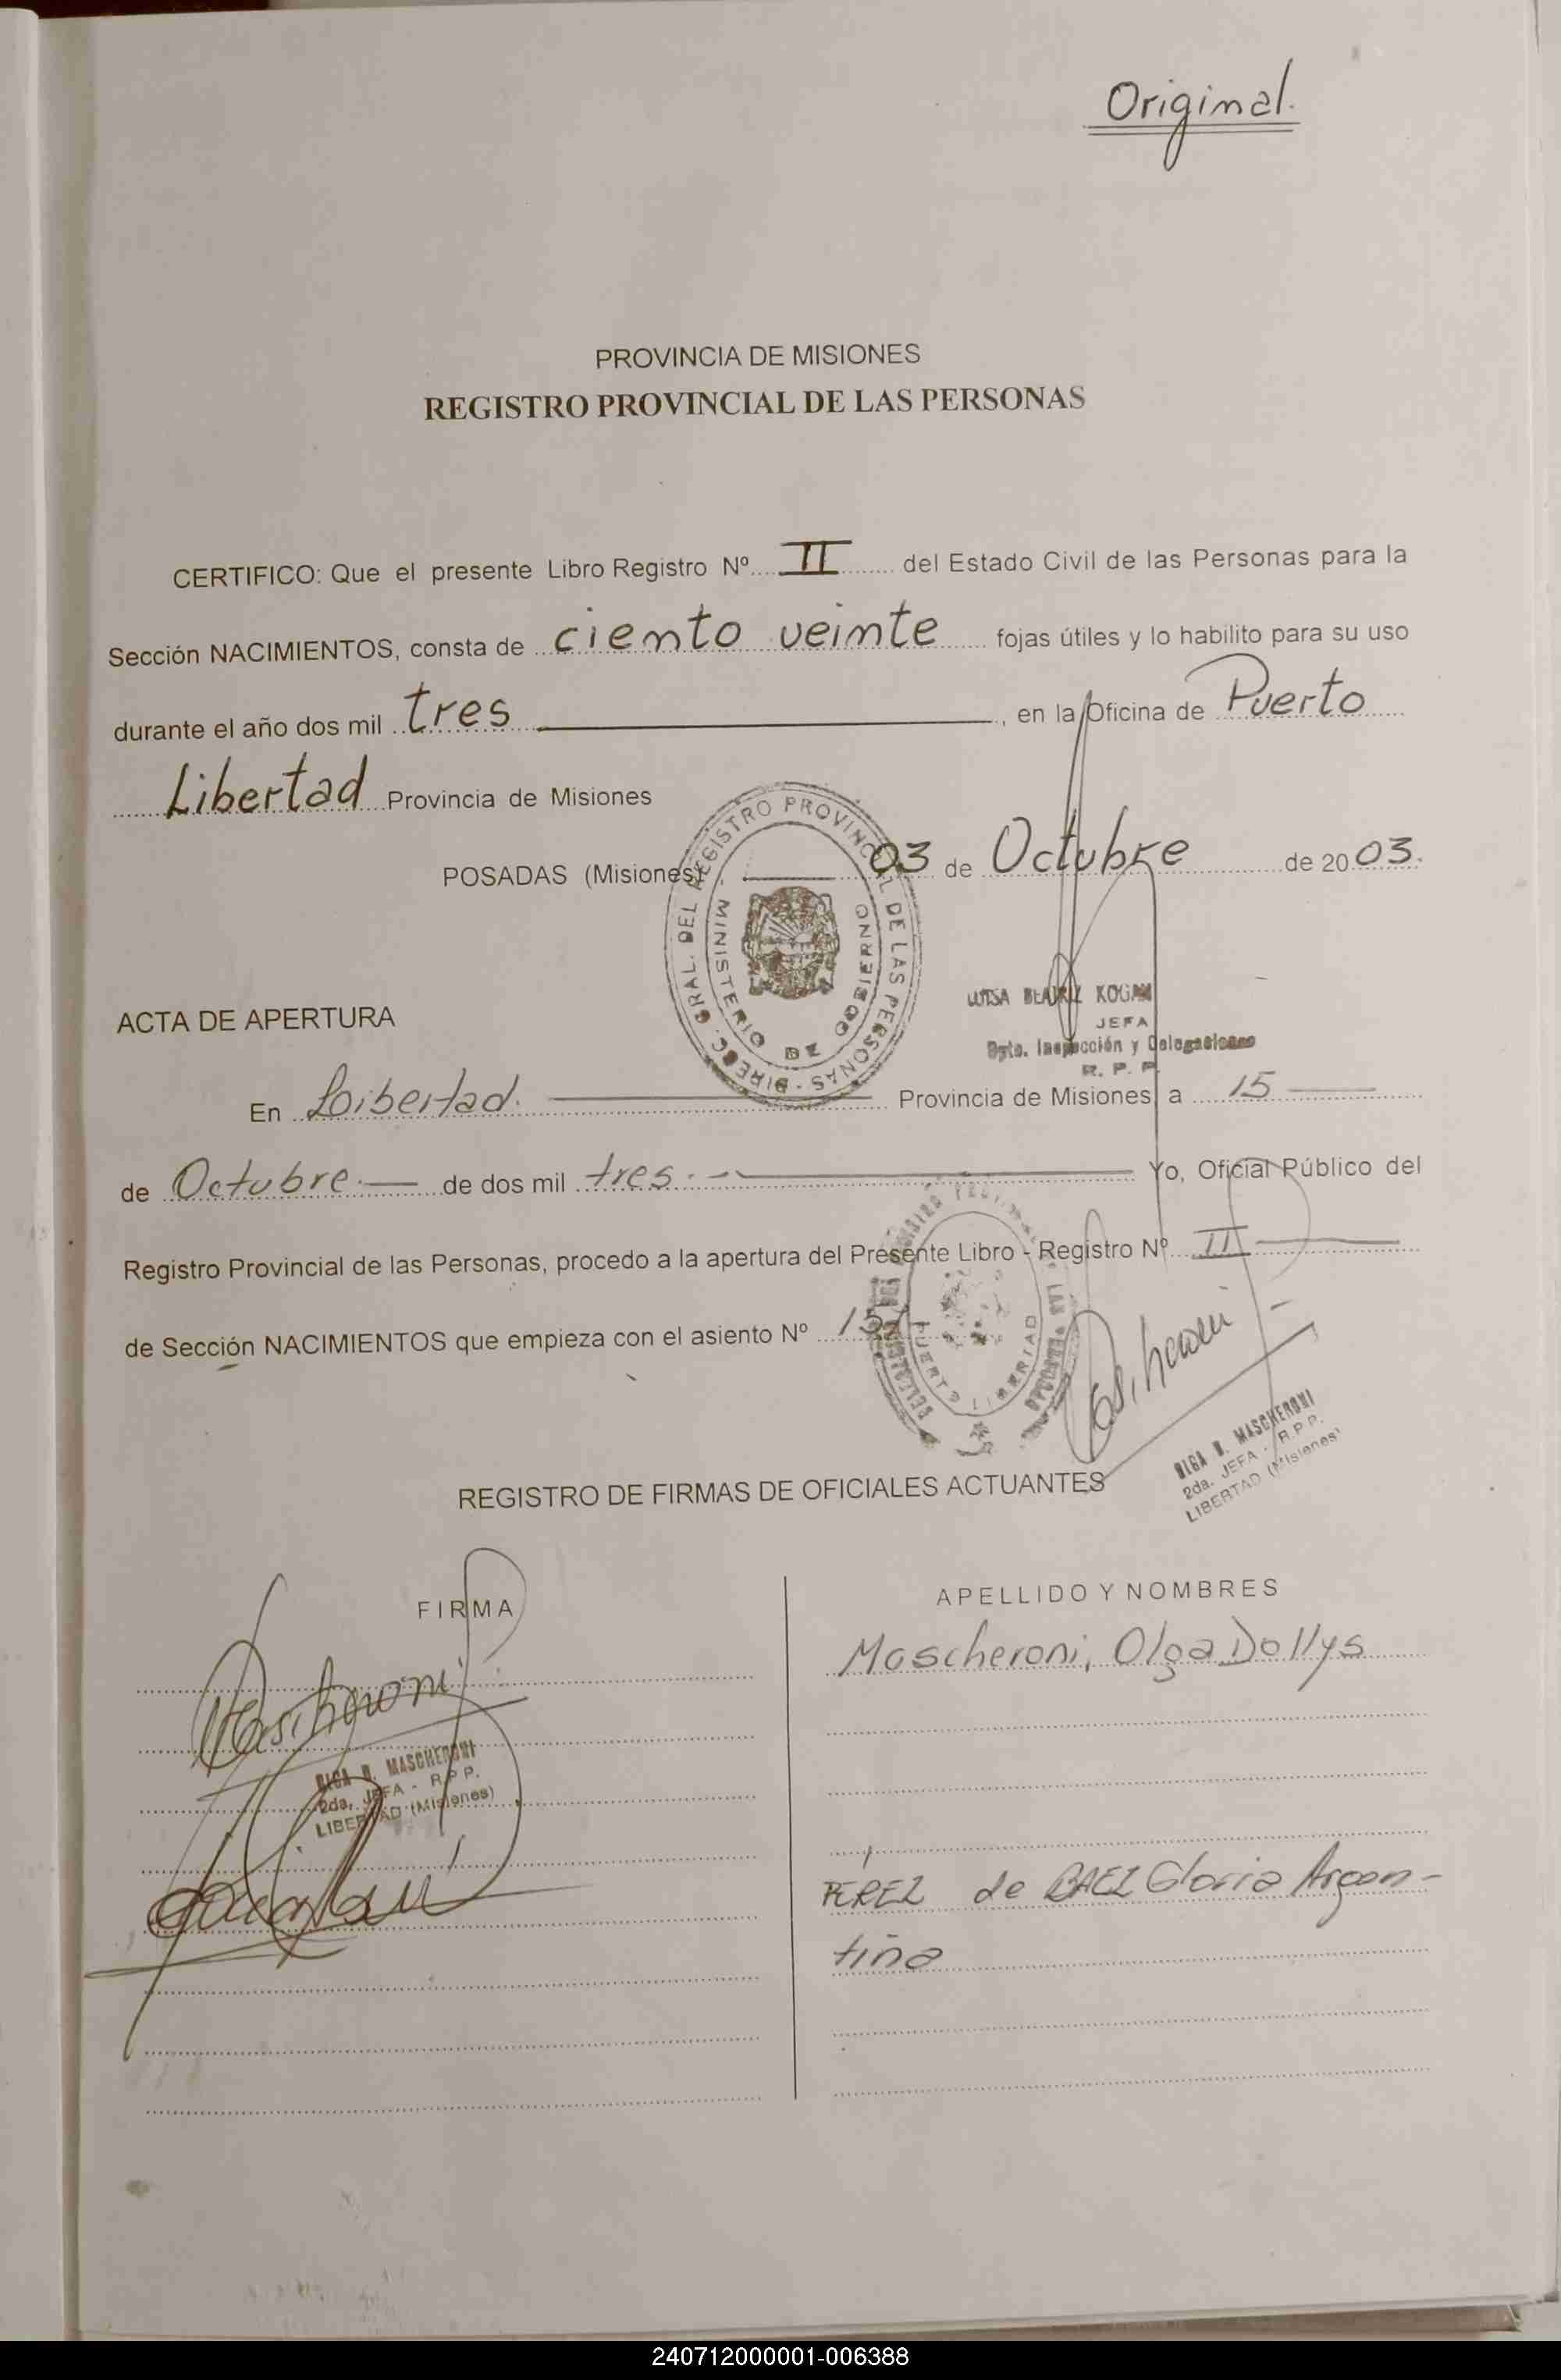 Original.
PROVINCIA DE MISIONES
REGISTRO PROVINCIAL DE LAS PERSONAS
CERTIFICO: Que el presente Libro Registro Nº II del Estado Civil de las Personas para la
Sección NACIMIENTOS, consta de ciento veinte fojas útiles y lo habilito para su uso
durante el año dos mil tres, en la Oficina de Puerto
Libertad Provincia de Misiones
POSADAS (Misiones) 03 de Octubre de 2003.
DIREC. GRAL. DEL REGISTRO PROVINCIAL DE LAS PERSONAS
MINISTERIO DE GOBIERNO
LUISA BEATRIZ KOGAN
JEFA
Dpto. Inspección y Delegaciones
R. P. P.
ACTA DE APERTURA
En Libertad. Provincia de Misiones a 15
de Octubre de dos mil tres. Yo, Oficial Público del
Registro Provincial de las Personas, procedo a la apertura del Presente Libro - Registro Nº II
de Sección NACIMIENTOS que empieza con el asiento Nº
PUERTO LIBERTAD
Mascheroni
OLGA D. MASCHERONI
2da. JEFA - R.P.P.
LIBERTAD (Misiones)
REGISTRO DE FIRMAS DE OFICIALES ACTUANTES
FIRMA
APELLIDO Y NOMBRES
Mascheroni
Mascheroni, Olga Dollys
OLGA D. MASCHERONI
2da. JEFA - R.P.P.
LIBERTAD (Misiones)
PEREZ de BAEZ Gloria Argen-
tina
240712000001-006388